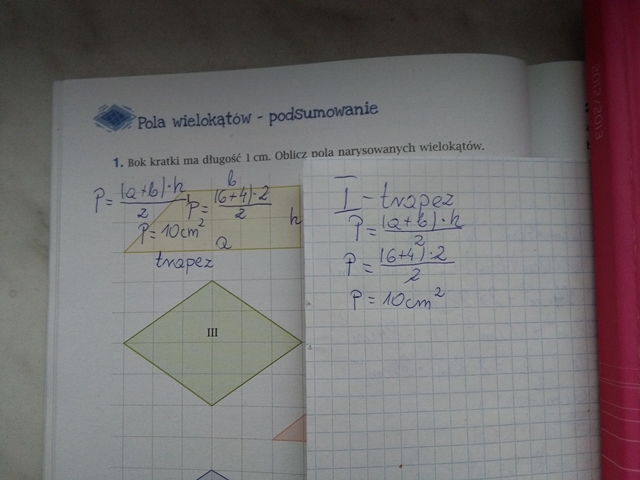 Pola wielokątów - podsumowanie
1. Bok kratki ma długość 1 cm. Oblicz pola narysowanych wielokątów.
P = (a+b)·h / 2
b
P = (6+4)·2 / 2
h
P = 10cm²
a
trapez
III
I - trapez
P = (a+b)·h / 2
P = (6+4)·2 / 2
P = 10cm²
2012/2013